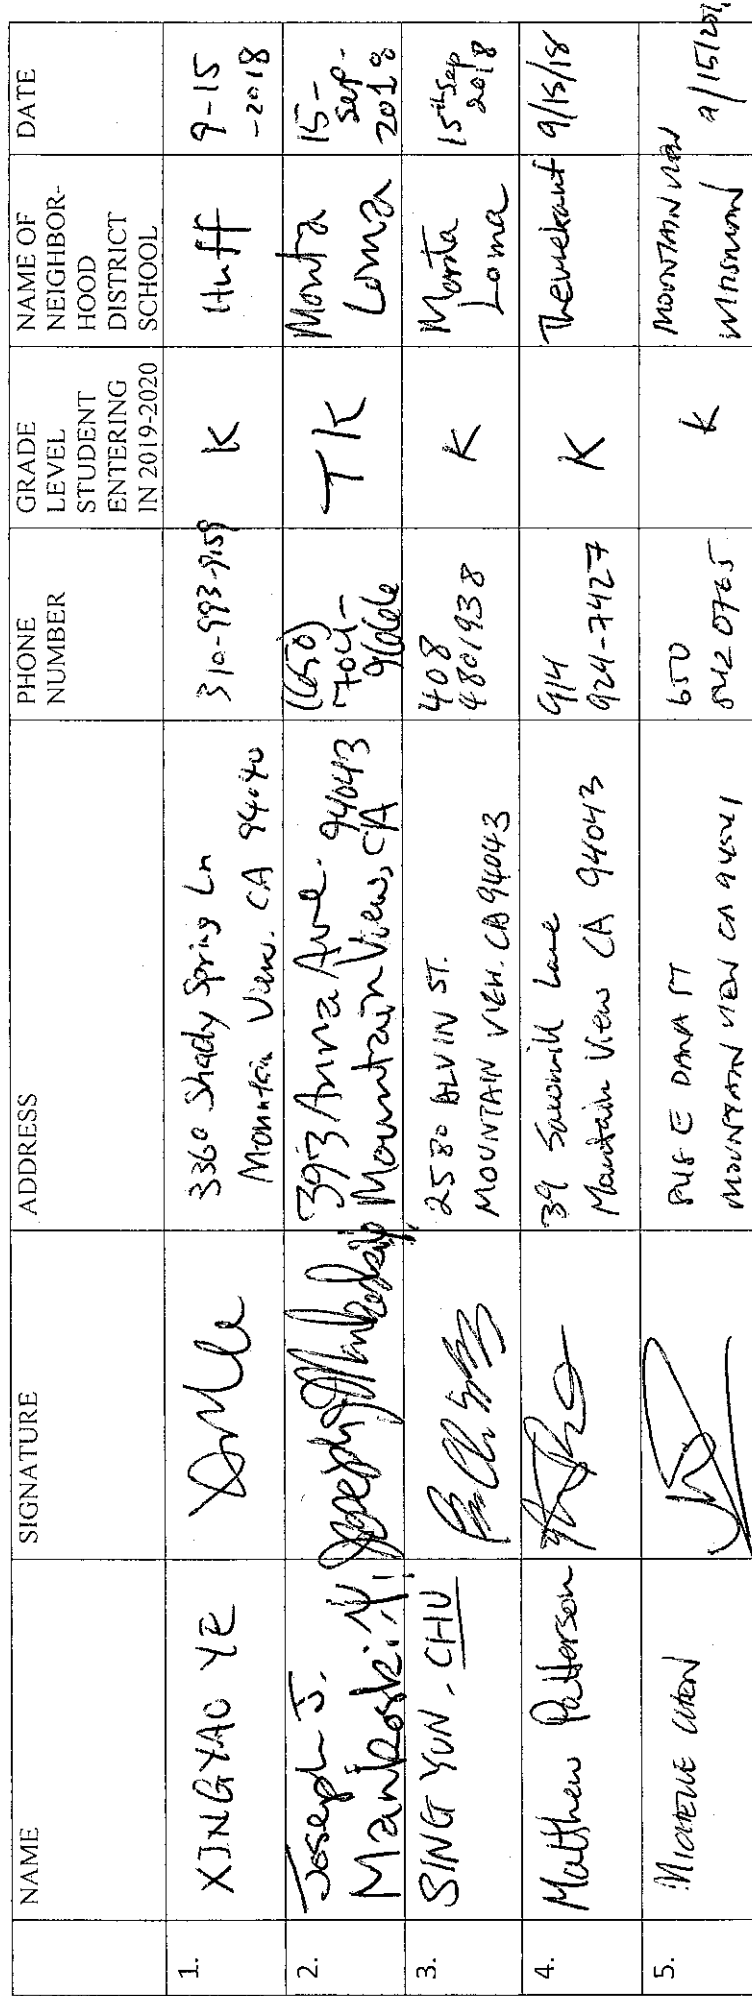 NAME
SIGNATURE
ADDRESS
PHONE
NUMBER
GRADE
LEVEL
STUDENT
ENTERING
IN 2019-2020
NAME OF
NEIGHBOR-
HOOD
DISTRICT
SCHOOL
DATE
1.
XINGYAO YE
3360 Shady Spring Ln
Mountain View, CA 94040
310-993-9159
K
Huff
9-15
-2018
2.
Joseph J.
Mankoski
393 Anna Ave. 94043
Mountain View, CA
(650)
704-
9666
TK
Monta
Loma
15-
Sep-
2018
3.
SING YUN, CHU
2580 ALVIN ST.
MOUNTAIN VIEW, CA 94043
408
4801938
K
Monta
Loma
15th Sep
2018
4.
Matthew Patterson
39 Sawmill Lane
Mountain View CA 94043
914
924-7427
K
Theuerkauf
9/15/18
5.
MICHELLE CHEN
E DANA ST
MOUNTAIN VIEW CA 94041
650
K
MOUNTAIN VIEW
9/15/201